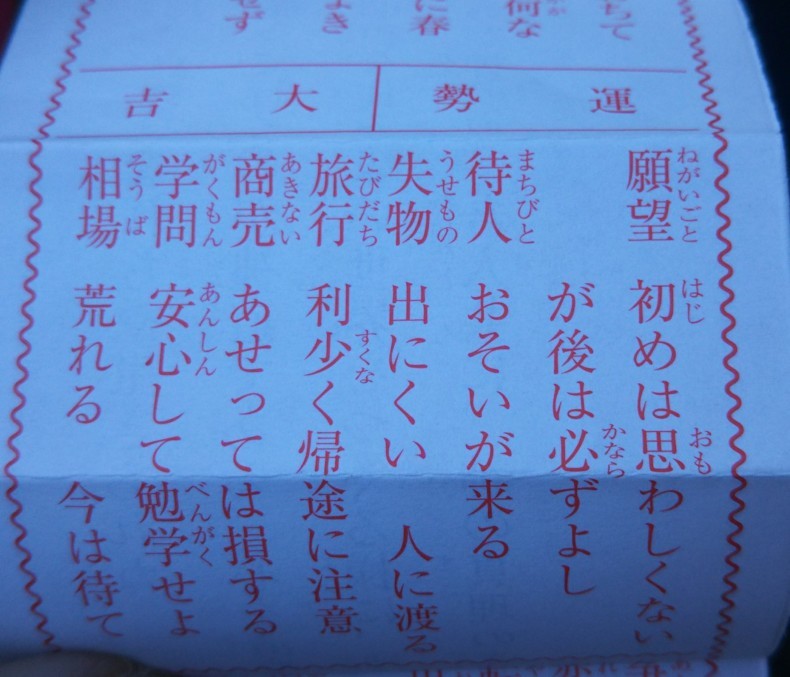 運勢 大吉
願望 初めは思わしくない
が後は必ずよし
待人 おそいが来る
失物 出にくい 人に渡る
旅行 利少く帰途に注意
商売 あせっては損する
学問 安心して勉学せよ
相場 荒れる 今は待て